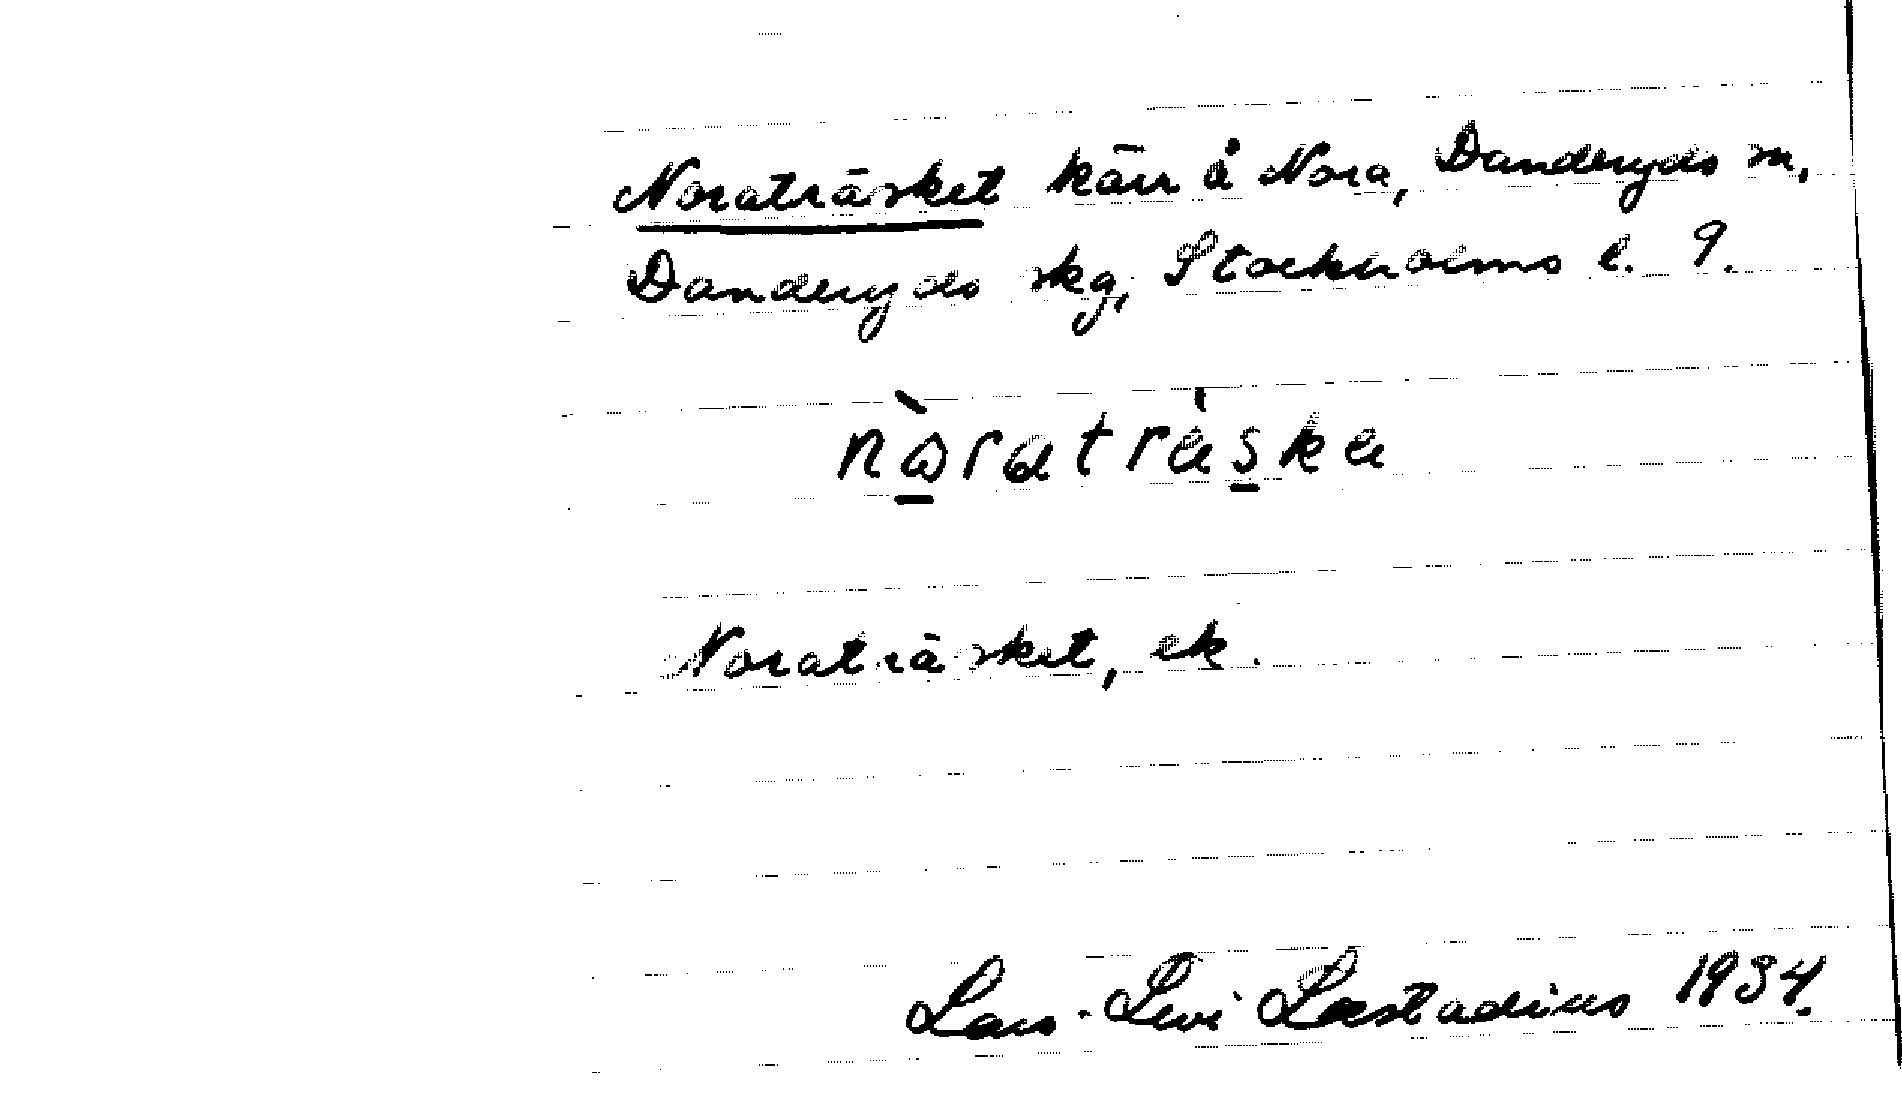 Noraträsket kärr å Nora, Danderyds sn,
Danderyds skg, Stockholms l. 9.
Noraträsket, ek.
Lars-Levi Læstadius 1934.